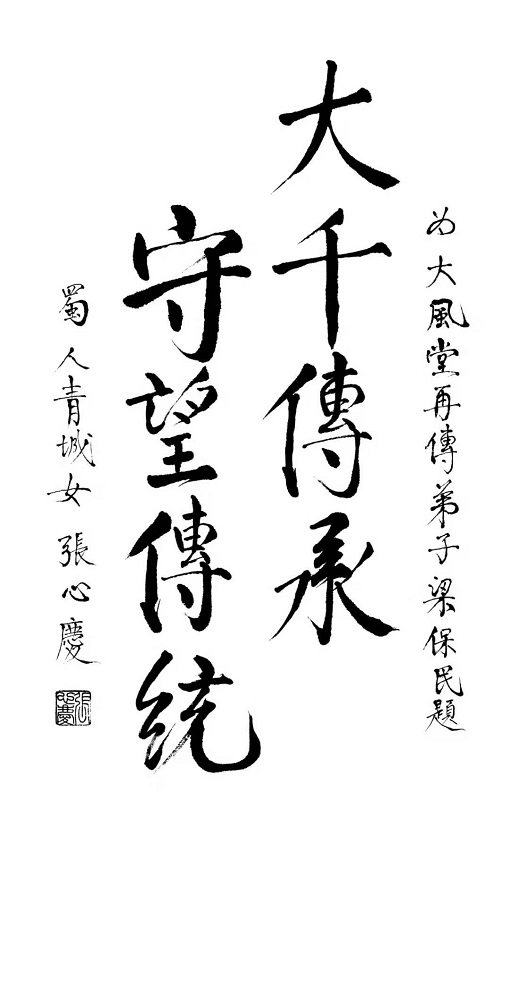 为大風堂再傳弟子梁保民題
大千傳承
守望傳統
蜀人青城女張心慶